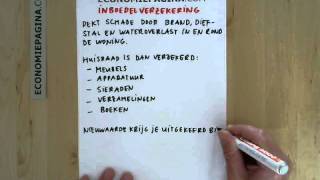 ECONOMIEPAGINA.COM
ECONOMIEPAGINA.COM
INBOEDELVERZEKERING
DEKT SCHADE DOOR BRAND, DIEF-
STAL EN WATEROVERLAST IN EN ROND
DE WONING.
HUISRAAD IS DAN VERZEKERD:
- MEUBELS
- APPARATUUR
- SIERADEN
- VERZAMELINGEN
- BOEKEN
NIEUWWAARDE KRIJG JE UITGEKEERD BI